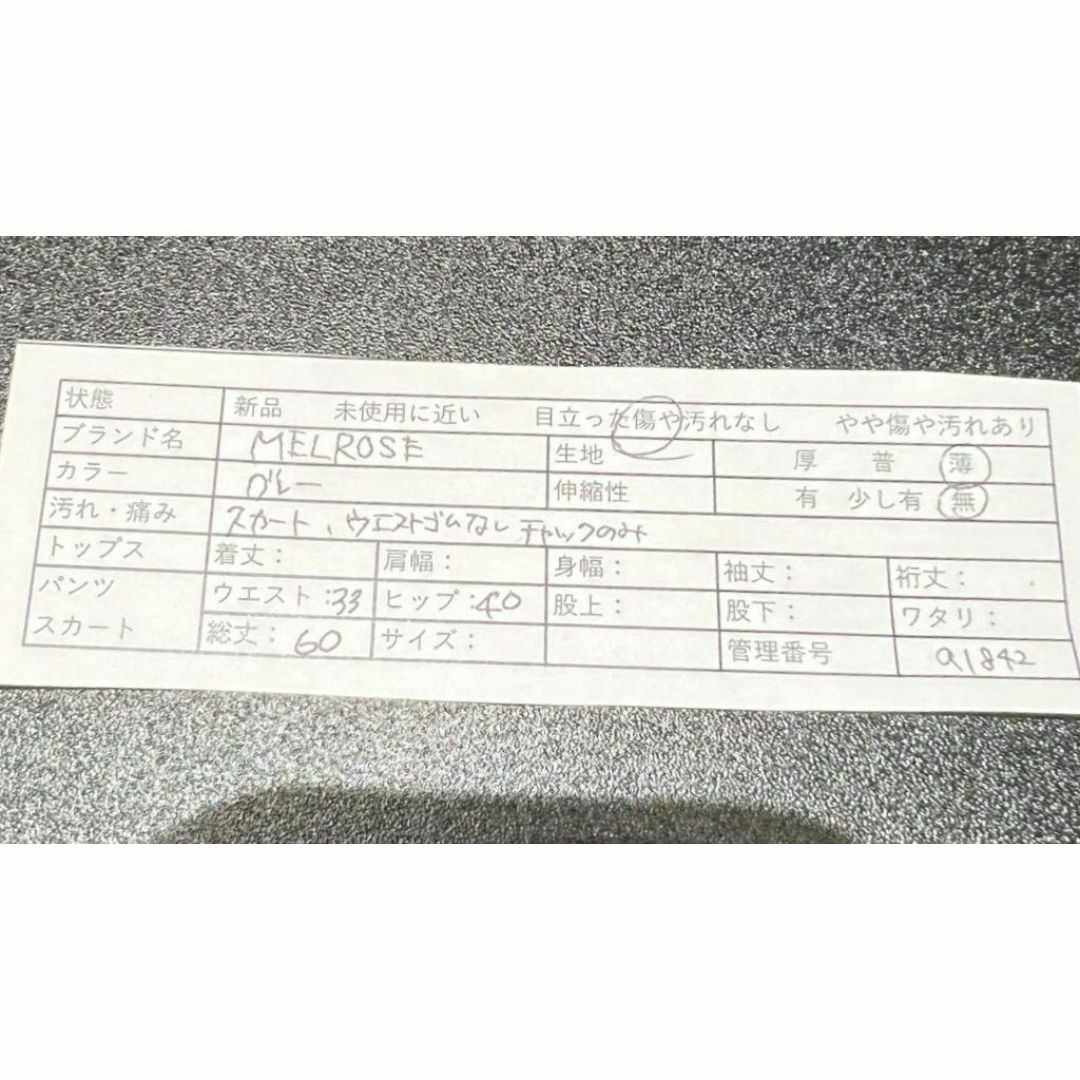 状態 新品 未使用に近い 目立った傷や汚れなし やや傷や汚れあり
ブランド名 MELROSE 生地 厚 普 薄
カラー グレー 伸縮性 有 少し有 無
汚れ・痛み スカート、ウエストゴムなし チャックのみ
トップス 着丈: 肩幅: 身幅: 袖丈: 裄丈:
パンツ ウエスト:33 ヒップ:40 股上: 股下: ワタリ:
スカート 総丈:60 サイズ: 管理番号 a1842